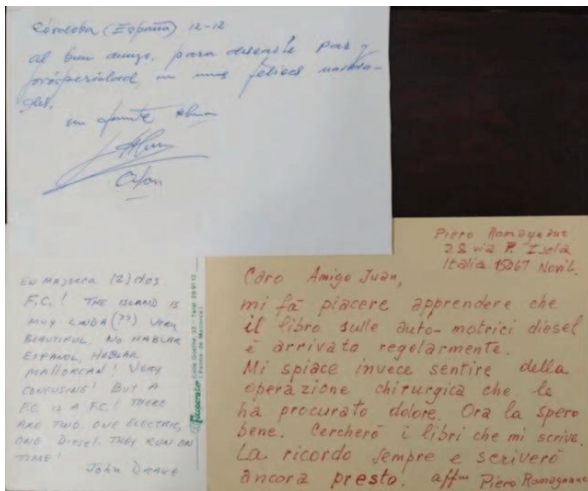 Córdoba (España) 12-12
al buen amigo, para desearle paz y
prosperidad, en unas felices navida-
des,
un fuerte abrazo
EN MAJORCA (2) dos
F.C.! THE ISLAND IS
MUY LINDA (??) VERY
BEAUTIFUL. NO HABLAR
ESPANOL, HABLAR
MALLORCAN! VERY
CONFUSING! BUT A
F.C. IS A F.C.! THERE
ARE TWO. ONE ELECTRIC,
ONE DIESEL. THEY RUN ON
TIME!
John
Piero Romagnano
28 via P. Isola
Italia 15067 Novi L.
Caro Amigo Juan,
mi fà piacere apprendere che
il libro sulle auto-motrici diesel
è arrivato regolarmente.
Mi spiace invece sentire della
operazione chirurgica che le
ha procurato dolore. Ora la spero
bene. Cercherò i libri che mi scrive.
La ricordo sempre e scriverò
ancora presto. affmo Piero Romagnano